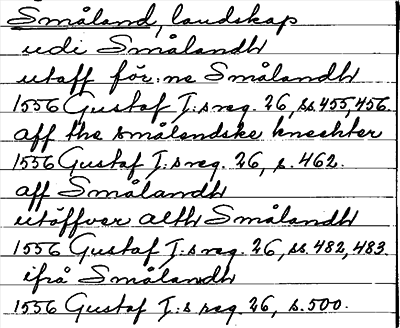 Småland, landskap
udi Smålandh
utaff för:ne Smålandh
1556 Gustaf I:s reg. 26, ss. 455, 456.
aff the småle̅ndske knechter
1556 Gustaf I:s reg. 26, s. 462.
aff Smålandh
utöffver alth Smålandh
1556 Gustaf I:s reg. 26, ss. 482, 483.
ifrå Smålandh
1556 Gustaf I:s reg. 26, s. 500.